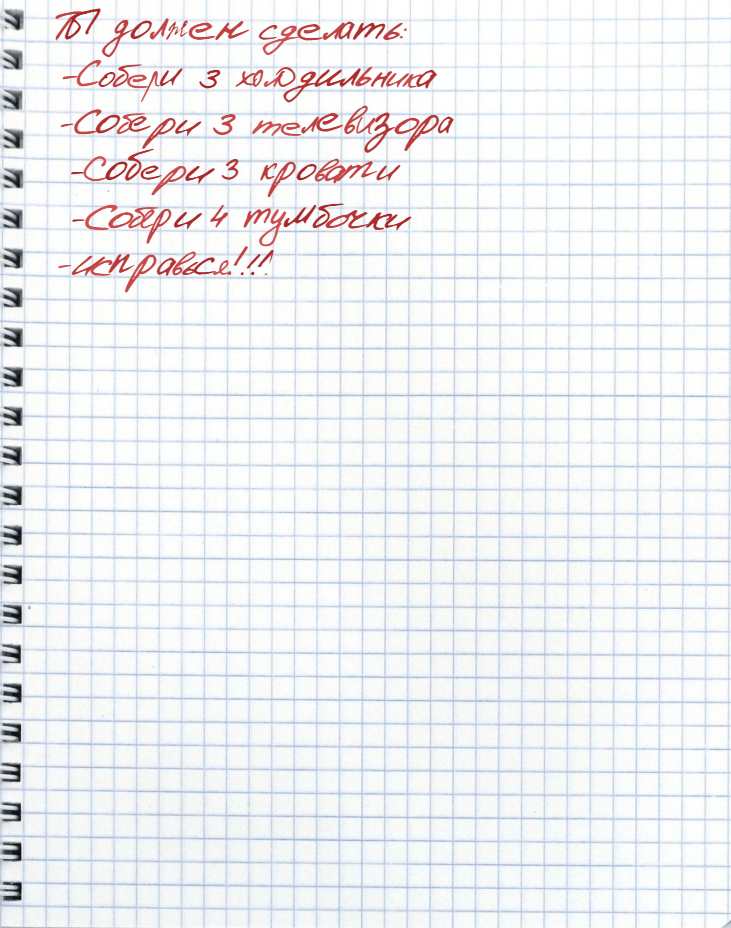 Ты должен сделать:
-Собери 3 холодильника
-Собери 3 телевизора
-Собери 3 кровати
-Собери 4 тумбочки
-исправься!!!